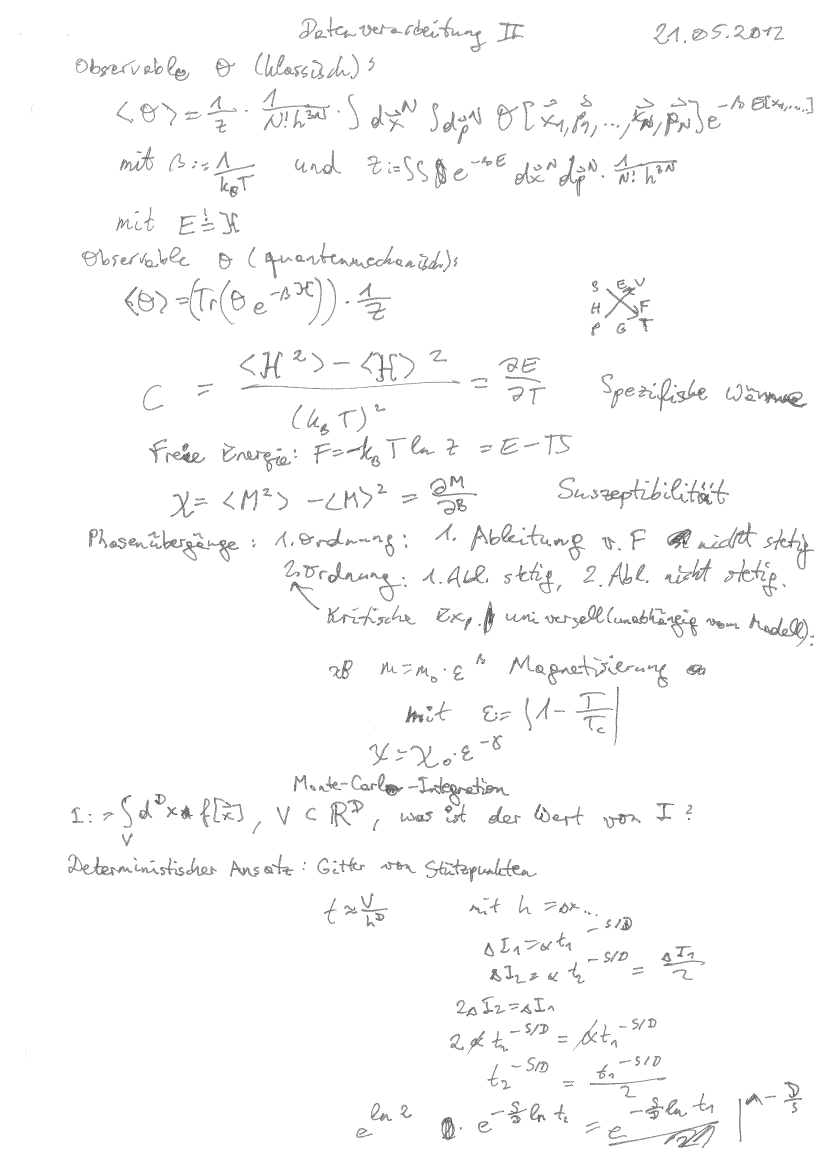 Datenverarbeitung II 21.05.2012
Observable Θ (klassisch):
⟨Θ⟩ = 1/Z · 1/(N! h^{3N}) · ∫ dx⃗^N ∫ dp⃗^N Θ[x⃗_1, p⃗_1, ..., x⃗_N, p⃗_N] e^{-β E[x_1, ....]}
mit β := 1/(k_B T) und Z := ∫∫ e^{-βE} dx⃗^N dp⃗^N · 1/(N! h^{3N})
mit E ≟ ℋ
Observable Θ (quantenmechanisch):
⟨Θ⟩ = (Tr(Θ e^{-βℋ})) · 1/Z
S E V
H F
P G T
C = (⟨ℋ²⟩ - ⟨ℋ⟩²)/(k_B T)² = ∂E/∂T Spezifische Wärme
Freie Energie: F = -k_B T ln Z = E - TS
χ = ⟨M²⟩ - ⟨M⟩² = ∂M/∂B Suszeptibilität
Phasenübergänge: 1. Ordnung: 1. Ableitung v. F nicht stetig
2. Ordnung: 1. Abl. stetig, 2. Abl. nicht stetig.
Kritische Exp. universell (unabhängig vom Modell):
zB m = m_0 · ε^β Magnetisierung
mit ε = |1 - T/T_c|
χ = χ_0 · ε^{-γ}
Monte-Carlo-Integration
I := ∫_V d^D x f[x⃗], V ⊂ ℝ^D, was ist der Wert von I?
Deterministischer Ansatz: Gitter von Stützpunkten
t ≈ V/h^D mit h = Δx...
ΔI_1 = α t_1^{-S/D}
ΔI_2 = α t_2^{-S/D} = ΔI_1/2
2ΔI_2 = ΔI_1
2 α t_2^{-S/D} = α t_1^{-S/D}
t_2^{-S/D} = t_1^{-S/D}/2
e^{ln 2} · e^{-S/D ln t_2} = e^{-S/D ln t_1} | ^ - D/S